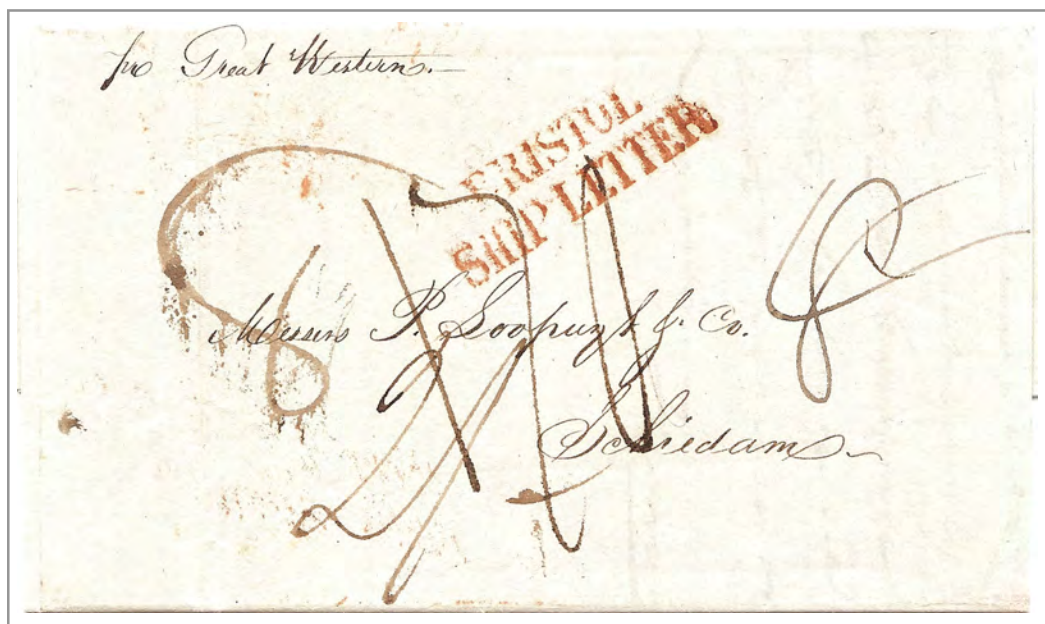 pr Great Western.—
BRISTOL
SHIP LETTER
Messrs P. Loopuyt & Co.
Schiedam